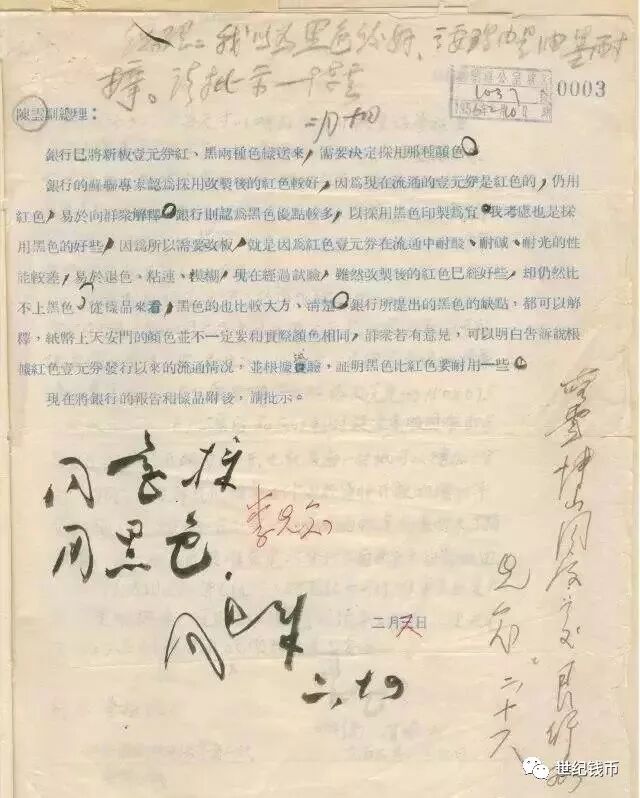 我以为黑色较好
0003
陳雲副總理：
銀行已將新板壹元券紅、黑兩種色樣送來，需要決定採用那種顏色。
銀行的蘇聯專家認爲採用改製後的紅色較好，因爲現在流通的壹元券是紅色的，仍用
紅色，易於向群衆解釋。銀行則認爲黑色優點較多，以採用黑色印製爲宜。我考慮也是採
用黑色的好些，因爲所以需要改板，就是因爲紅色壹元券在流通中耐酸、耐碱、耐光的性
能較差，易於退色、粘連、模糊，現在經過試驗，雖然改製後的紅色已經好些，却仍然比
不上黑色，從樣品來看，黑色的也比較大方、清楚。銀行所提出的黑色的缺點，都可以解
釋，紙幣上天安門的顏色並不一定要和實際顏色相同，群衆若有意見，可以明白告訴說根
據紅色壹元券發行以來的流通情况，並根據試驗，証明黑色比紅色要耐用一些。
現在將銀行的報告和樣品附後，請批示。
同意採
用黑色.
李先念
二月 日
二、十四
先念
世纪钱币